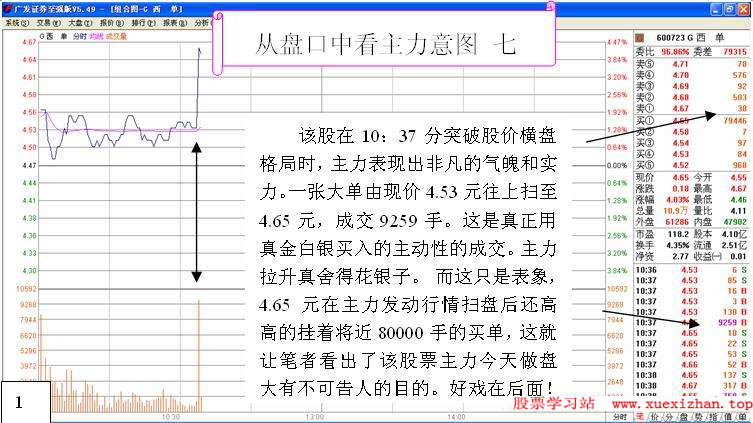 广发证券至强版V5.49 - [组合图-G 西 单]
系统(S) 交易(T) 大盘(Z) 报价(M) 排行(P) 报表(B) 分析
从盘口中看主力意图 七
G 西 单 分时 均线 成交量
600723 G 西 单
委比 96.86% 委差 79315
卖⑤ 4.71 78
卖④ 4.70 576
卖③ 4.69 92
卖② 4.68 503
卖① 4.67 38
买① 4.65 79446
买② 4.58 7
买③ 4.54 97
买④ 4.53 84
买⑤ 4.52 968
现价 4.65 今开 4.55
涨跌 0.18 最高 4.67
涨幅 4.03% 最低 4.46
总量 10.9万 量比 4.11
外盘 61286 内盘 47902
市盈 118.2 股本 4.10亿
换手 4.35% 流通 2.51亿
净资 2.77 收益㈠ 0.01
10:36 4.53 6 S
10:37 4.53 85 S
10:37 4.53 16 B
10:37 4.53 3 B
10:37 4.53 130 B
10:37 9259 B
10:37 4.65 18 S
10:37 4.65 22 S
10:37 4.65 53 S
10:37 4.65 52 B
10:38 4.65 137 S
10:38 4.67 317 B
4.67
4.65
4.62
4.60
4.58
4.55
4.53
4.50
4.47
4.44
4.41
4.38
4.36
4.34
4.32
4.30
10592
9268
7944
6620
5296
3972
2648
1324
4.47%
3.84%
3.20%
2.56%
1.92%
1.28%
0.64%
0.00%
0.64%
1.28%
1.92%
2.56%
3.20%
3.84%
10592
9268
7944
6620
5296
3972
2648
1324
该股在 10：37 分突破股价横盘
格局时，主力表现出非凡的气魄和实
力。一张大单由现价 4.53 元往上扫至
4.65 元，成交 9259 手。这是真正用
真金白银买入的主动性的成交。主力
拉升真舍得花银子。 而这只是表象，
4.65 元在主力发动行情扫盘后还高
高的挂着将近 80000 手的买单，这就
让笔者看出了该股票主力今天做盘
大有不可告人的目的。好戏在后面！
1
10:30
13:00
14:00
分时
笔 价 分 盘 势 指 值 单
股票学习站 www.xuexizhan.top